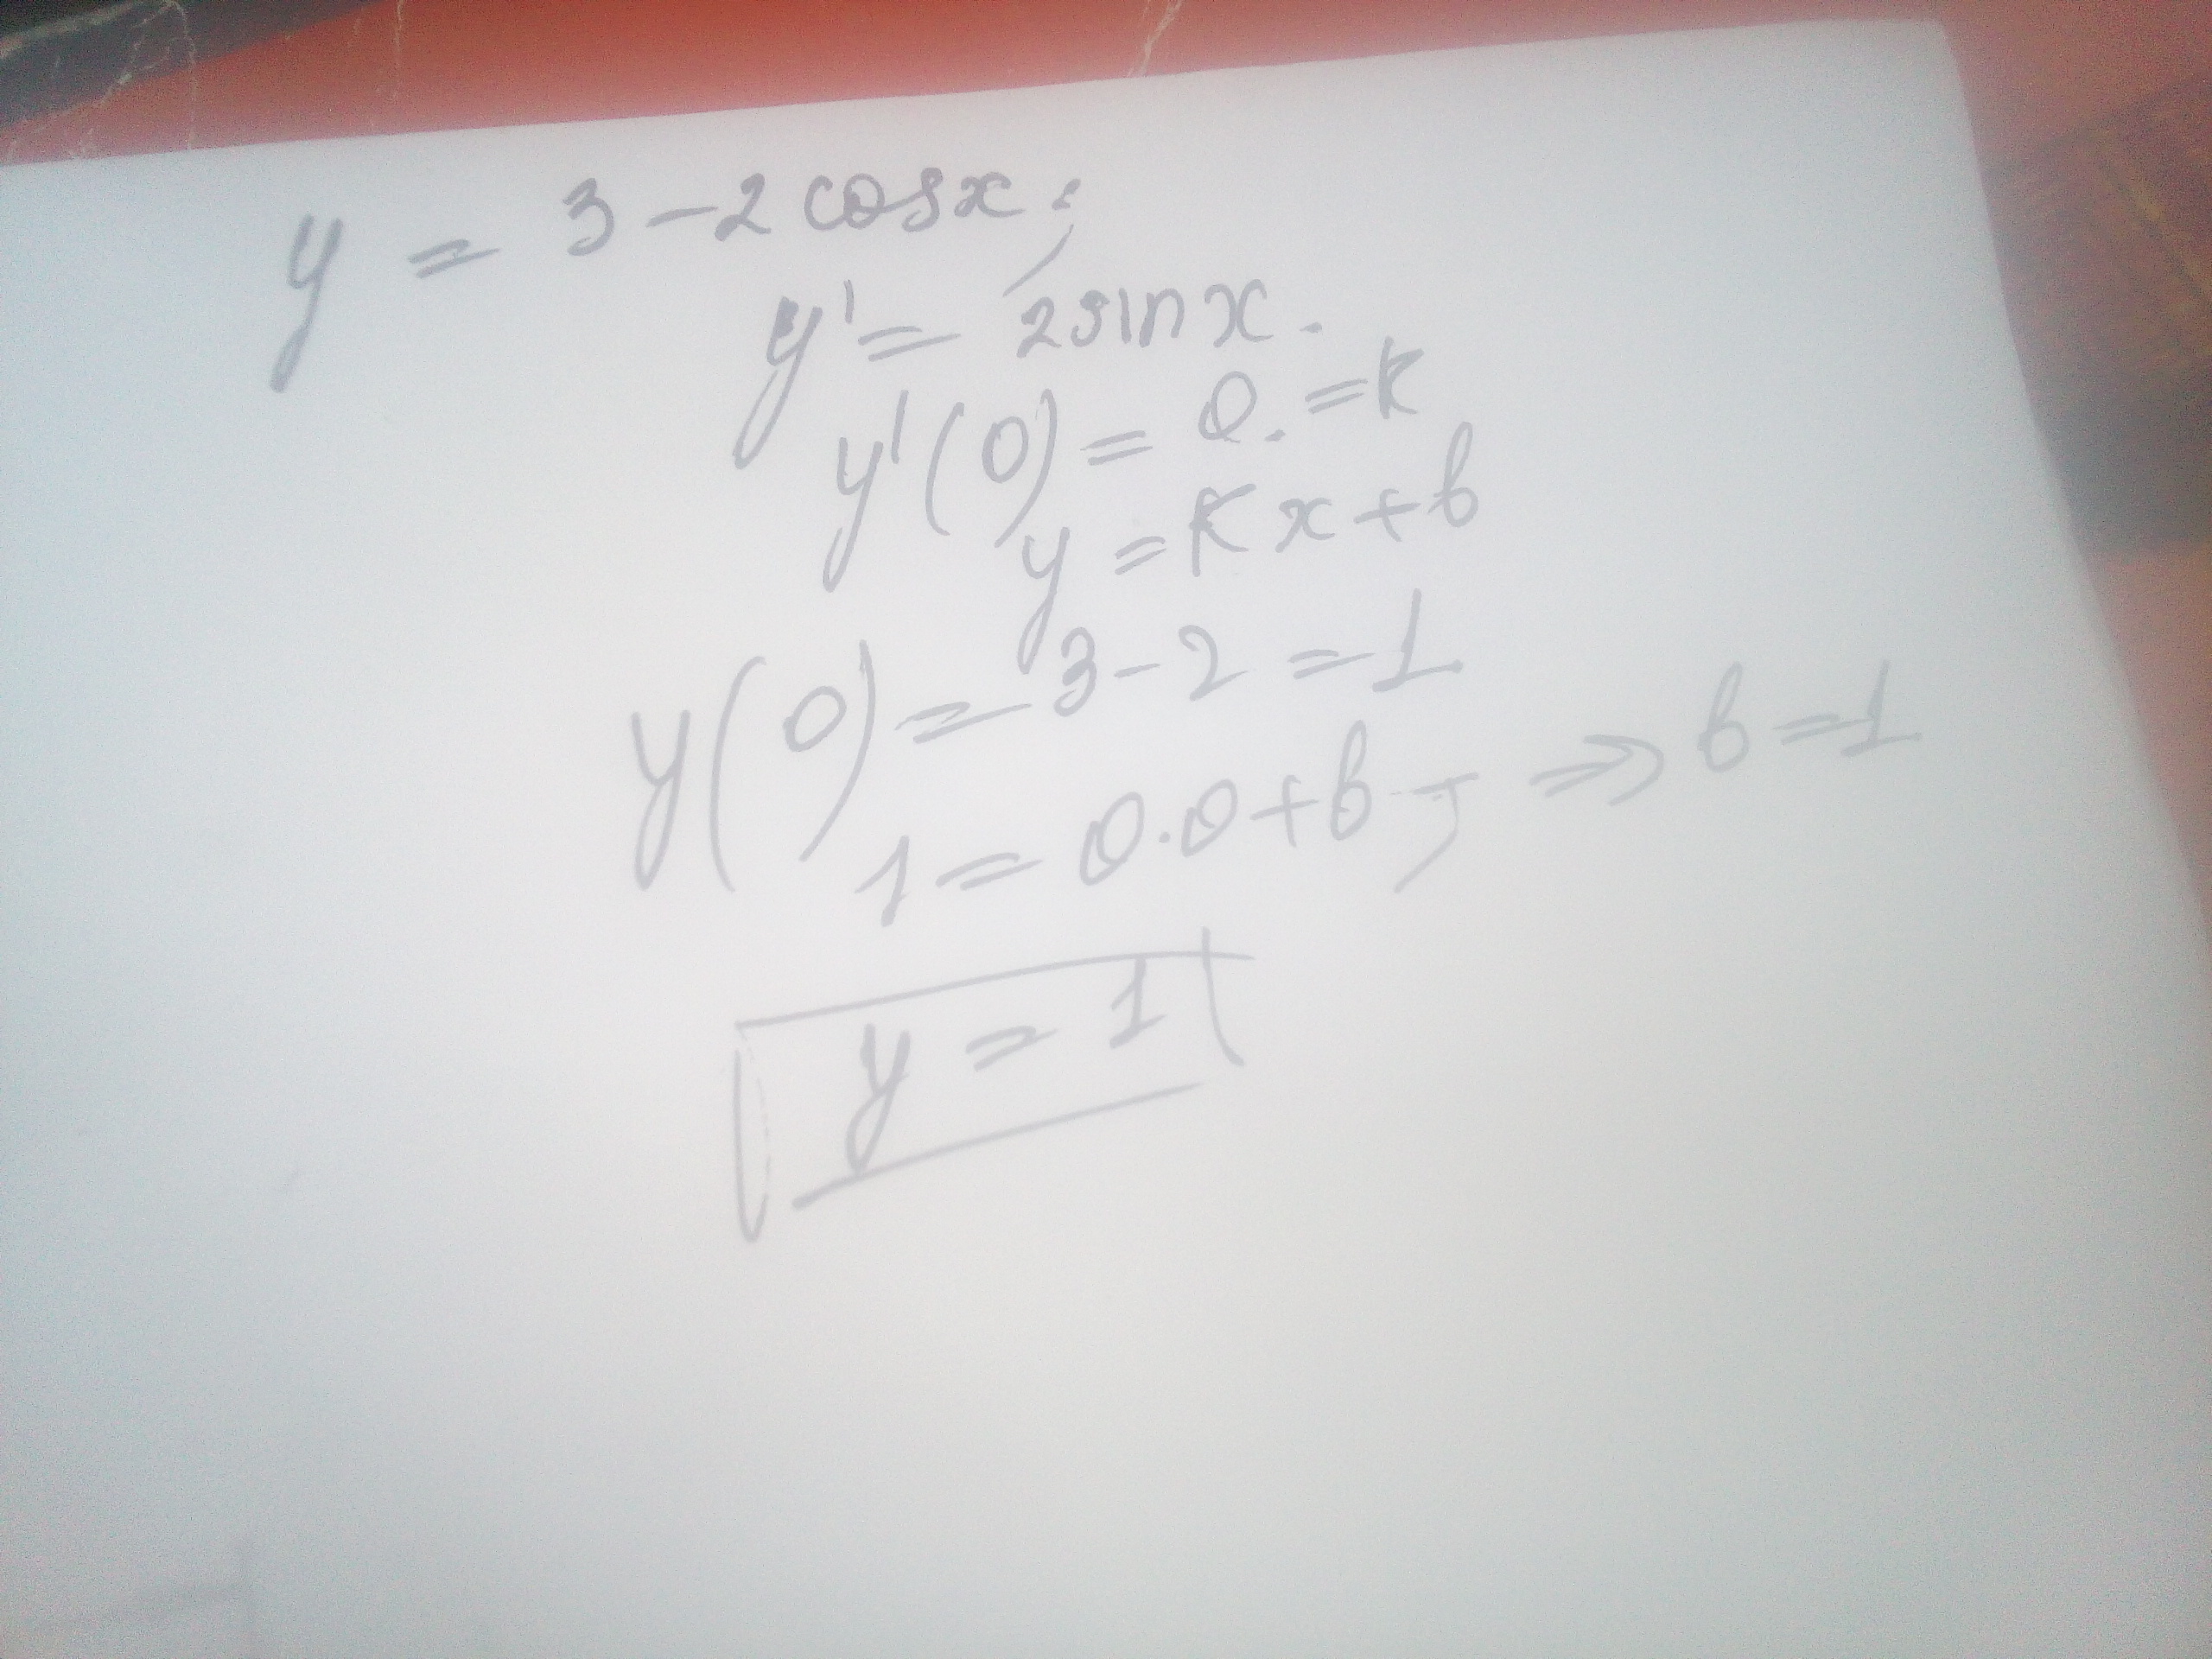 y = 3 - 2 cos x;
y' = 2 sin x.
y'(0) = 0. = k
y = kx + b
y(0) = 3 - 2 = 1
1 = 0 · 0 + b; ⇒ b = 1
y = 1